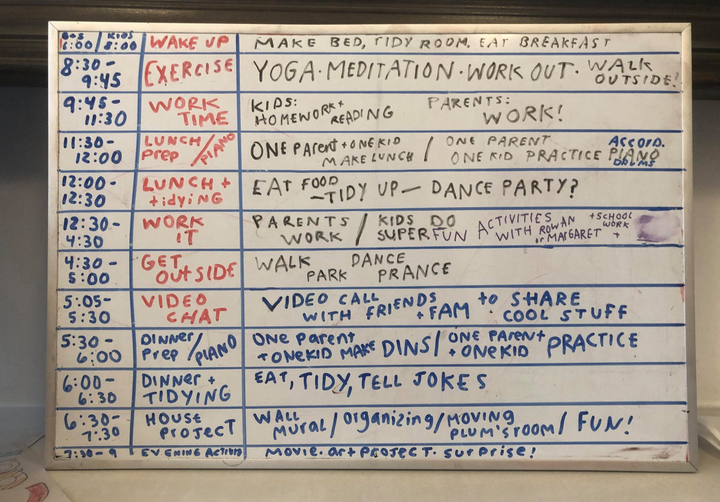 6:00 / KIDS 8:00 WAKE UP MAKE BED, TIDY ROOM, EAT BREAKFAST
8:30- 9:45 EXERCISE YOGA · MEDITATION · WORK OUT · WALK OUTSIDE!
9:45- 11:30 WORK TIME KIDS: HOMEWORK + READING PARENTS: WORK!
11:30- 12:00 LUNCH / Prep / PIANO ONE PARENT + ONE KID MAKE LUNCH / ONE PARENT ONE KID PRACTICE ACCORD. PIANO DRUMS
12:00- 12:30 LUNCH + tidying EAT FOOD – TIDY UP – DANCE PARTY?
12:30- 4:30 WORK IT PARENTS WORK / KIDS DO SUPER FUN ACTIVITIES WITH ROWAN or MARGARET + +SCHOOL WORK
4:30- 5:00 GET OUTSIDE WALK PARK DANCE PRANCE
5:05- 5:30 VIDEO CHAT VIDEO CALL WITH FRIENDS + FAM to SHARE COOL STUFF
5:30- 6:00 DINNER Prep / PIANO ONE PARENT + ONE KID MAKE DINS / ONE PARENT + ONE KID PRACTICE
6:00- 6:30 DINNER + TIDYING EAT, TIDY, TELL JOKES
6:30- 7:30 HOUSE PROJECT WALL MURAL / Organizing / MOVING PLUM'S ROOM / FUN!
7:30-9 EVENING ACTIVITY MOVIE · art PROJECT · surprise!